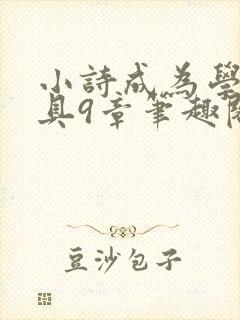 小詩成為學
具9章筆趣
豆沙包子